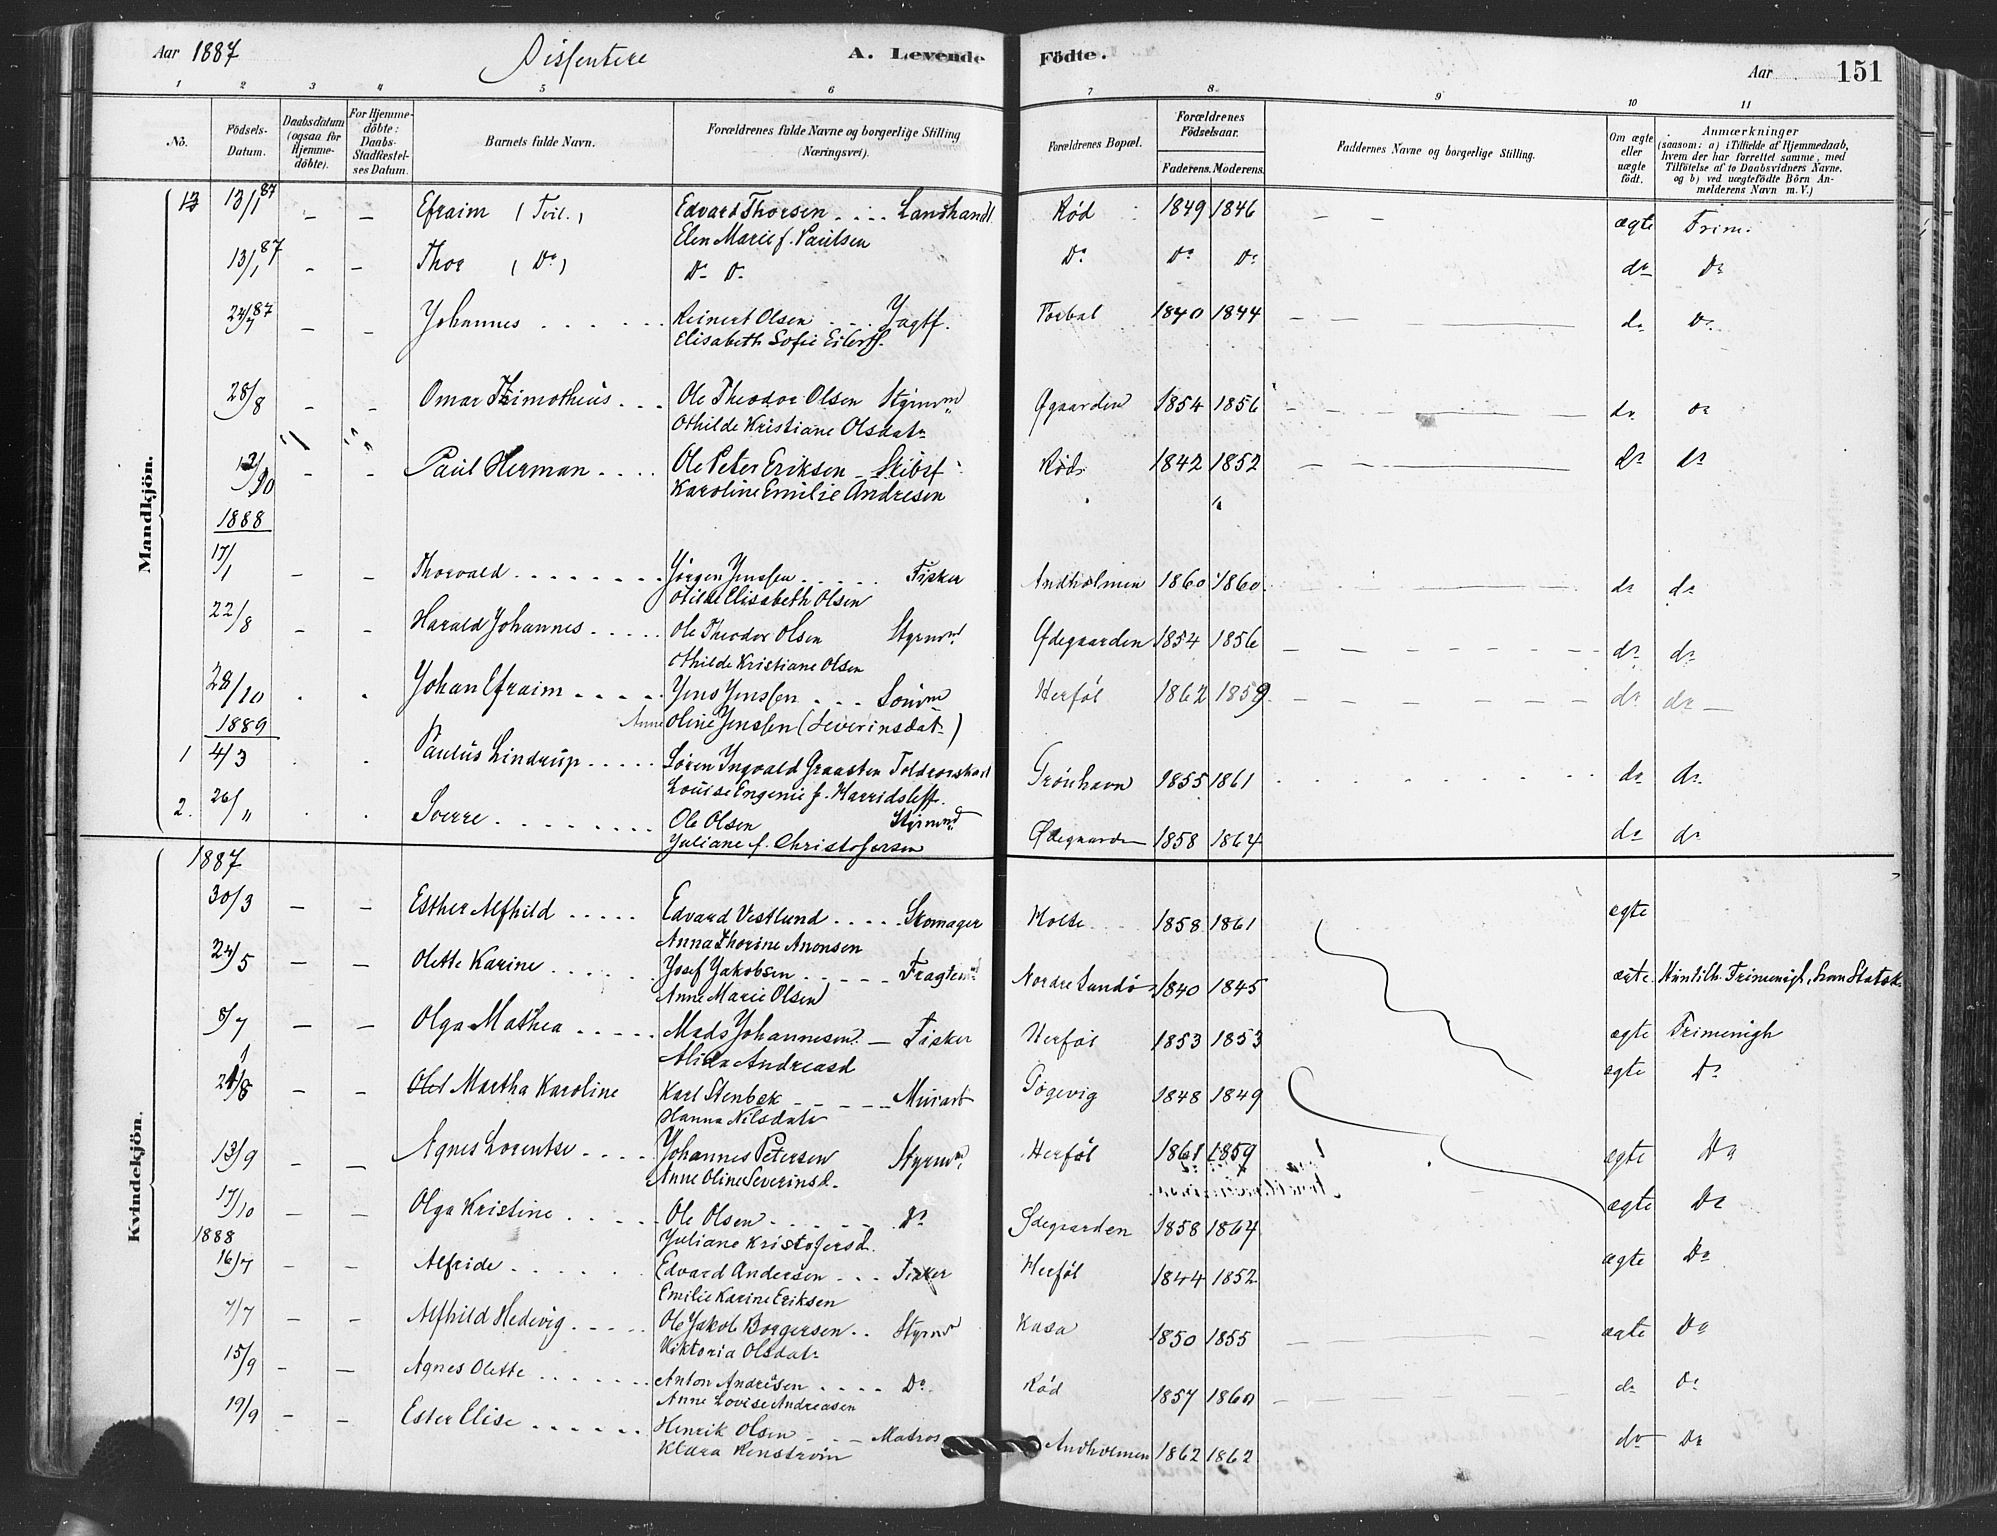 Aar 1887 Dissentere A. Levende Födte. Aar 151
1 2 3 4 5 6 7 8 9 10 11
No. Födsels-Datum. Daabsdatum (ogsaa for Hjemme-döbte). For Hjemme-döbte: Daabs-Stadfæstel-ses Datum. Barnets fulde Navn. Forældrenes fulde Navne og borgerlige Stilling (Næringsvei). Forældrenes Bopæl. Forældrenes Födselsaar. Faderens. Moderens. Faddernes Navne og borgerlige Stilling. Om ægte eller uægte födt. Anmærkninger (saasom: a) i Tilfælde af Hjemmedaab, hvem der har forrettet samme, med Tilföielse af to Daabsvidners Navne, og b) ved uægtefödte Börn An-melderens Navn m. V.)
Mandkjön.
13 13/1 87 – – Efraim (Tvil.) Edvard Thorsen .... Landhandl. Rød 1849 1846 – – ægte Frim.
Elen Marie f. Paulsen
13/1 87 – – Thor (Do) Do Do Do Do Do do Do
24/7 87 – – Johannes Reinert Olsen ... Jagtf. Torbal 1840 1844 do Do
Elisabeth Sofie Eilertf.
28/8 – – Omar Thimotheus Ole Theodor Olsen Styrm. Øgaarden 1854 1856 do Do
Othilde Kristiane Olsdatr
– – Paul Herman Ole Peter Eriksen – Skibsf. Rød 1842 1852 do do
Karoline Emilie Andresen
1888
17/1 – – Thorvald Jörgen Jenssen Fisker Andholmen 1860 1860 do do
Otilde Elisabeth Olsen
22/8 – – Harald Johannes Ole Theodor Olsen Styrmd. Ødegaarden 1854 1856 do do
Othilde Kristiane Olsen
28/10 Johan Efraim Jens Jenssen Herføl 1862 1859 do do
1889 Anne Oline Jenssen (Severinsdatr)
1 4/3 Paulus Lindrup Sören Ingvald Graasten Grönhavn 1855 1861 do do
Louise Eugenie f.
2. 26/„ Sverre Ole Olsen Styrmd. Ødegaarden 1858 1864 do do
Juliane f. Christofersen
Kvindekjön.
1887
30/3 – – Esther Alfhild Edvard Vestlund .... Skomager Holte 1858 1861 ægte
Anna Thorine Aronsen
24/5 – – Olette Karine Josef Jakobsen Fragtem. Nordre Sandö 1840 1845 ægte
Anne Marie Olsen
8/7 – – Olga Mathea Mads Johannesen – Fisker Herføl 1853 1853 ægte Frimenigh
Alida Andreasd
– – Martha Karoline Karl Stenbek Murarb Pøgevig 1848 1849 ægte Do
Hanna Nilsdatr
13/9 – – Agnes Lorentse Johannes Petersen Styrm. Herføl 1861 1859 ægte Do
Anne Oline Severinsd.
17/10 – – Olga Kristine Ole Olsen Do Ødegaarden 1858 1864 ægte Do
1888 Juliane Kristofersd.
16/7 – – Alfride Edvard Andersen ... Fisker Herføl 1844 1852 ægte Do
Emilie Karine Eriksen
7/7 – – Alfhild Hedevig Ole Jakob Borgersen .. Styrmd Kasa 1850 1855 ægte Do
Viktoria Olsdatr
15/9 – – Agnes Olette Anton Andrésen .... Do. Rød 1857 1860 do Do
Anne Lovise Andreasen
19/9 – – Ester Elise Henrik Olsen Matros Andholmen 1862 1862 do Do
Klara Renström